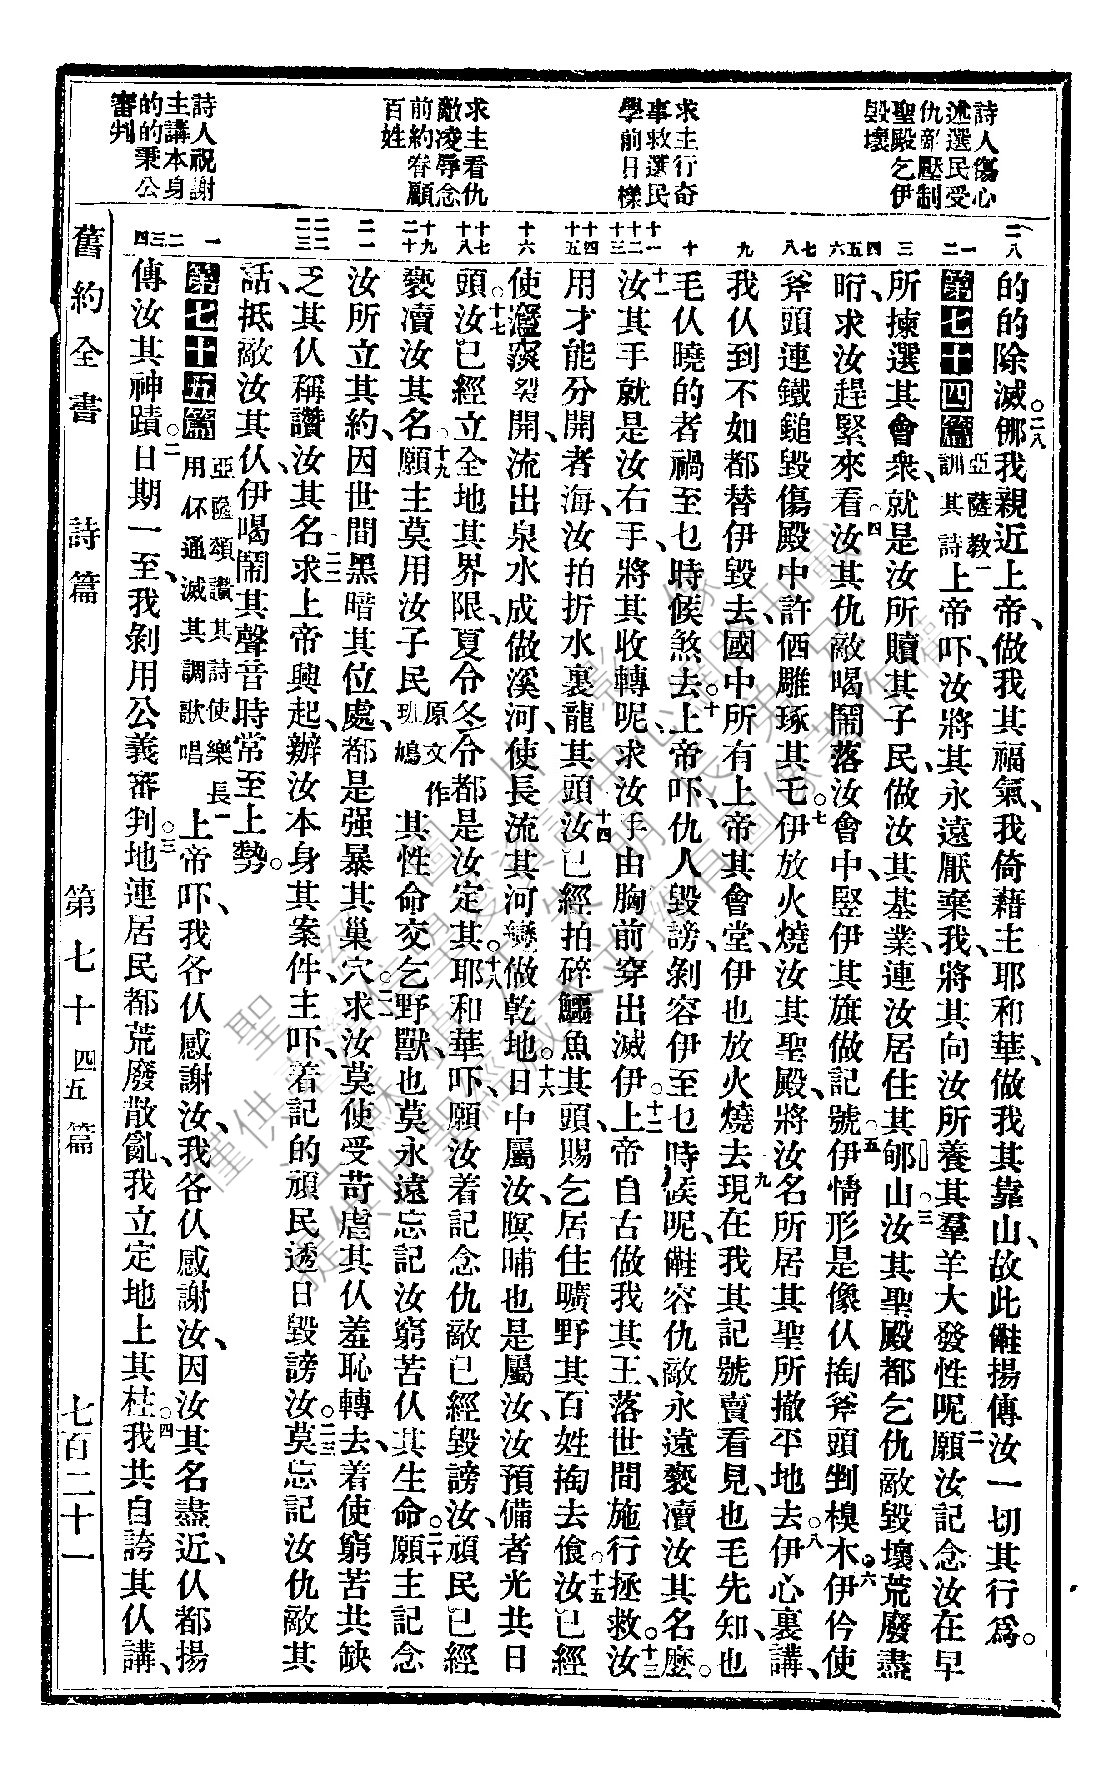 詩人傷心
述選民受
仇敵壓制
聖殿乞伊
毀壞
求主行奇
事救選民
學前日樣
求主看仇
敵凌辱念
前約眷顧
百姓
詩人祝謝
主講本身
的的秉公
審判
的的除滅。二八 那我親近上帝、做我其福氣、我倚藉主耶和華、做我其靠山、故此㑚揚傳汝一切其行爲。
第七十四篇 亞薩教訓其詩 一 上帝吓、汝將其永遠厭棄我、將其向汝所養其羣羊大發性呢、二 願汝記念汝在早
所揀選其會衆、就是汝所贖其子民、做汝其基業、連汝居住其郇山。三 汝其聖殿都乞仇敵毀壞、荒廢盡
𪠽、求汝趕緊來看。四 汝其仇敵喝鬧落汝會中、竪伊其旗做記號。五 伊情形是像仈掏斧頭剉模木。六 伊伱使
斧頭連鐵鎚毀傷殿中許㑚雕琢其乇。七 伊放火燒汝其聖殿、將汝名所居其聖所撤平地去。八 伊心裏講、
我仈到不如都替伊毀去、國中所有上帝其會堂、伊也放火燒去。九 現在我其記號賣看見、也毛先知、也
毛仈曉的者禍至乜時候煞去。十 上帝吓、仇人毀謗、剝容伊至乜時候呢、㑚容仇敵永遠褻瀆汝其名麽。
十一 汝其手就是汝右手、將其收轉呢、求汝手由胸前穿出滅伊。十二 上帝自古做我其王、落世間施行拯救。十三 汝
用才能分開者海、汝拍折水裏龍其頭。十四 汝已經拍碎鱷魚其頭、賜乞居住曠野其百姓掏去飡。十五 汝已經
使磹竅裂開、流出泉水成做溪河、使長流其河變做乾地。十六 日中屬汝、暝晡也是屬汝、汝預備者光共日
頭。十七 汝已經立全地其界限、夏令冬令都是汝定其。十八 耶和華吓、願汝着記念仇敵已經毀謗汝、頑民已經
褻瀆汝其名。十九 願主莫用汝子民 原文作班鳩 其性命交乞野獸、也莫永遠忘記汝窮苦仈其生命。二十 願主記念
汝所立其約、因世間黑暗其位處、都是强暴其巢穴。二一 求汝莫使受苛虐其仈羞恥轉去、着使窮苦共缺
乏其仈稱讚汝其名。二二 求上帝興起、辦汝本身其案件、主吓、着記的頑民透日毀謗汝。二三 莫忘記汝仇敵其
話、抵敵汝其仈、伊喝鬧其聲音時常至上勢。
第七十五篇 亞薩頌讚其詩使樂長用伓通滅其調歌唱 一 上帝吓、我各仈感謝汝、我各仈感謝汝、因汝其名盡近、仈都揚
傳汝其神蹟。二 日期一至、我剝用公義審判。三 地連居民都荒廢散亂、我立定地上其柱。四 我共自誇其仈講、
舊約全書　詩篇　第七十四五篇　七百二十一